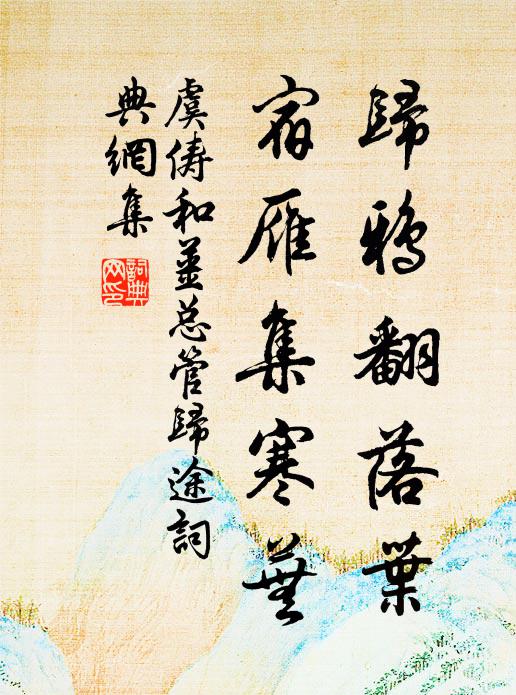 歸鴉翻落葉
宿雁集寒蕪
虞儔和姜总管歸途詞
典網集
詞典
网印